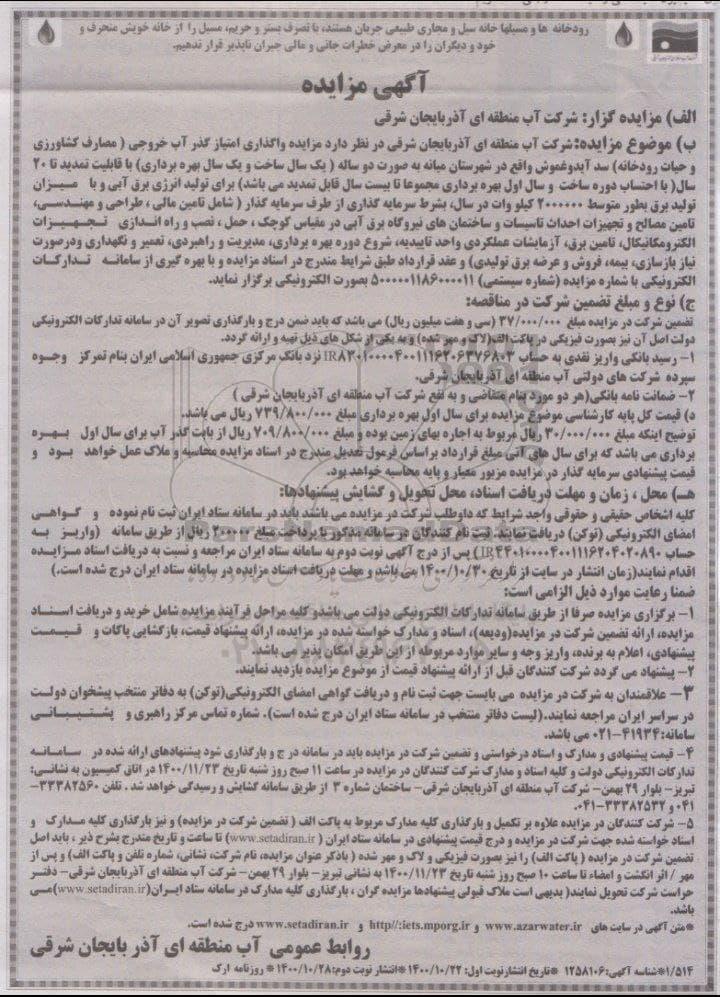 رودخانه ها و مسیلها خانه سیل و مجاری طبیعی جریان هستند، با تصرف بستر و حریم، مسیل را از خانه خویش منحرف و
خود و دیگران را در معرض خطرات جانی و مالی جبران ناپذیر قرار ندهیم.
آگهی مزایده
الف) مزایده گزار: شرکت آب منطقه ای آذربایجان شرقی
ب) موضوع مزایده: شرکت آب منطقه ای آذربایجان شرقی در نظر دارد مزایده واگذاری امتیاز گذر آب خروجی ( مصارف کشاورزی
و حیات رودخانه) سد آیدوغموش واقع در شهرستان میانه به صورت دو ساله ( یک سال ساخت و یک سال بهره برداری) با قابلیت تمدید تا ۲۰
سال( با احتساب دوره ساخت و سال اول بهره برداری مجموعا تا بیست سال قابل تمدید می باشد) برای تولید انرژی برق آبی و با میزان
تولید برق بطور متوسط ۲۰۰۰۰۰۰ کیلو وات در سال، بشرط سرمایه گذاری از طرف سرمایه گذار ( شامل تامین مالی ، طراحی و مهندسی،
تامین مصالح و تجهیزات احداث تاسیسات و ساختمان های نیروگاه برق آبی در مقیاس کوچک ، حمل ، نصب و راه اندازی تجهیزات
الکترومکانیکال، تامین برق، آزمایشات عملکردی واحد تاییدیه، شروع دوره بهره برداری، مدیریت و راهبردی، تعمیر و نگهداری ودرصورت
نیاز بازسازی، بیمه، فروش و عرضه برق تولیدی) و عقد قرارداد طبق شرایط مندرج در اسناد مزایده و با بهره گیری از سامانه تدارکات
الکترونیکی با شماره مزایده (شماره سیستمی) ۵۰۰۰۰۰۱۱۸۶۰۰۰۰۱۱ بصورت الکترونیکی برگزار نماید.
ج) نوع و مبلغ تضمین شرکت در مناقصه:
تضمین شرکت در مزایده مبلغ ۳۷/۰۰۰/۰۰۰ (سی و هفت میلیون ریال) می باشد که باید ضمن درج و بارگذاری تصویر آن در سامانه تدارکات الکترونیکی
دولت اصل آن نیز بصورت فیزیکی در پاکت الف(لاک و مهر شده) و به یکی از شکل های ذیل تهیه و ارائه گردد.
۱- رسید بانکی واریز نقدی به حساب IR۸۳۰۱۰۰۰۰۴۰۰۱۱۱۶۲۰۶۳۷۶۸۰۳ نزد بانک مرکزی جمهوری اسلامی ایران بنام تمرکز وجوه
سپرده شرکت های دولتی آب منطقه ای آذربایجان شرقی.
۲- ضمانت نامه بانکی(هر دو مورد بنام متقاضی و به نفع شرکت آب منطقه ای آذربایجان شرقی )
د) قیمت کل پایه کارشناسی موضوع مزایده برای سال اول بهره برداری مبلغ ۷۳۹/۸۰۰/۰۰۰ ریال می باشد.
توضیح اینکه مبلغ ۳۰/۰۰۰/۰۰۰ ریال مربوط به اجاره بهای زمین بوده و مبلغ ۷۰۹/۸۰۰/۰۰۰ ریال از بابت گذر آب برای سال اول بهره
برداری می باشد که برای سال های آتی مبلغ قرارداد براساس فرمول تعدیل مندرج در اسناد مزایده محاسبه و ملاک عمل خواهد بود و
قیمت پیشنهادی سرمایه گذار در مزایده مزبور معیار و پایه محاسبه خواهد بود.
هـ) محل ، زمان و مهلت دریافت اسناد، محل تحویل و گشایش پیشنهادها:
کلیه اشخاص حقیقی و حقوقی واجد شرایط که داوطلب شرکت در مزایده می باشند باید در سامانه ستاد ایران ثبت نام نموده و گواهی
امضای الکترونیکی (توکن) دریافت نمایند. ثبت نام کنندگان در سامانه مذکور با پرداخت مبلغ ۲۰۰۰۰۰ ریال از طریق سامانه (واریز به
حساب IR۴۴۰۱۰۰۰۰۴۰۰۱۱۱۶۲۰۴۰۲۰۸۹۰) پس از درج آگهی نوبت دوم به سامانه ستاد ایران مراجعه و نسبت به دریافت اسناد مزایده
اقدام نمایند(زمان انتشار در سایت از تاریخ ۱۴۰۰/۱۰/۳۰ می باشد و مهلت دریافت اسناد مزایده در سامانه ستاد ایران درج شده است.)
ضمنا رعایت موارد ذیل الزامی است:
۱- برگزاری مزایده صرفا از طریق سامانه تدارکات الکترونیکی دولت می باشدو کلیه مراحل فرآیند مزایده شامل خرید و دریافت اسناد
مزایده، ارائه تضمین شرکت در مزایده(ودیعه)، اسناد و مدارک خواسته شده در مزایده، ارائه پیشنهاد قیمت، بازگشایی پاکات و قیمت
پیشنهادی، اعلام به برنده، واریز وجه و سایر موارد مربوطه از این طریق امکان پذیر می باشد.
۲- پیشنهاد می گردد شرکت کنندگان قبل از ارائه پیشنهاد قیمت از موضوع مزایده بازدید نمایند.
۳- علاقمندان به شرکت در مزایده می بایست جهت ثبت نام و دریافت گواهی امضای الکترونیکی(توکن) به دفاتر منتخب پیشخوان دولت
در سراسر ایران مراجعه نمایند.(لیست دفاتر منتخب در سامانه ستاد ایران درج شده است). شماره تماس مرکز راهبری و پشتیبانی
سامانه:۴۱۹۳۴-۰۲۱ می باشد.
۴- قیمت پیشنهادی و مدارک و اسناد درخواستی و تضمین شرکت در مزایده باید در سامانه درج و بارگذاری شود پیشنهادهای ارائه شده در سامانه
تدارکات الکترونیکی دولت و کلیه اسناد و مدارک شرکت کنندگان در مزایده در ساعت ۱۱ صبح روز شنبه تاریخ ۱۴۰۰/۱۱/۲۳ در اتاق کمیسیون به نشانی:
تبریز- بلوار ۲۹ بهمن- شرکت آب منطقه ای آذربایجان شرقی- ساختمان شماره ۳ از طریق سامانه گشایش و رسیدگی خواهد شد . تلفن ۳۳۳۸۲۵۶۰-
۰۴۱ و ۳۳۳۸۲۵۳۲-۰۴۱
۵- شرکت کنندگان در مزایده علاوه بر تکمیل و بارگذاری کلیه مدارک مربوط به پاکت الف ( تضمین شرکت در مزایده) و نیز بارگذاری کلیه مدارک و
اسناد خواسته شده جهت شرکت در مزایده و درج قیمت پیشنهادی در سامانه ستاد ایران ( www.setadiran.ir) تا ساعت و تاریخ مندرج بشرح ذیر ، باید اصل
تضمین شرکت در مزایده ( پاکت الف) را نیز بصورت فیزیکی و لاک و مهر شده ( باذکر عنوان مزایده، نام شرکت، نشانی، شماره تلفن و پاکت الف) و پس از
مهر / اثر انگشت و امضاء تا ساعت ۱۰ صبح روز شنبه تاریخ ۱۴۰۰/۱۱/۲۳ به نشانی تبریز- بلوار ۲۹ بهمن- شرکت آب منطقه ای آذربایجان شرقی- دفتر
حراست شرکت تحویل نمایند( بدیهی است ملاک قبولی پیشنهادها مزایده گران ، بارگذاری کلیه مدارک در سامانه ستاد ایران(www.setadiran.ir) می
باشد.
*متن آگهی در سایت های www.azarwater.ir و http//:iets.mporg.ir و www.setadiran.ir درج شده است.
روابط عمومی آب منطقه ای آذربایجان شرقی
۱/۵۱۴*شناسه آگهی: ۱۲۵۸۱۰۶ *تاریخ انتشار نوبت اول: ۱۴۰۰/۱۰/۲۲*انتشار نوبت دوم:۱۴۰۰/۱۰/۲۸ * روزنامه ارک